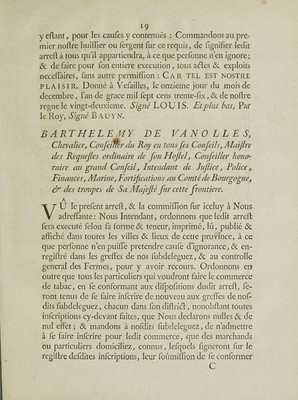 19
y estant, pour les causes y contenuës : Commandons au pre-
mier nostre huissier ou sergent sur ce requis, de signifier ledit
arrest à tous qu'il appartiendra, à ce que personne n'en ignore;
& de faire pour son entiere execution, tous actes & exploits
necessaires, sans autre permission : CAR TEL EST NOSTRE
PLAISIR. Donné à Vesailles, le onzieme jour du mois de
decembre, l'an de grace mil sept cens trente-six, & de nostre
regne le vingt-deuxieme. Signé LOUIS. Et plus bas, Par
le Roy, Signé BAUYN.
BARTHELEMY DE VANOLLES,
Chevalier, Conseiller du Roy en tous ses Conseils, Maistre
des Requestes ordinaire de son Hostel, Conseiller hono-
raire au grand Conseil, Intendant de Justice, Police,
Finances, Marine, Fortifications au Comté de Bourgogne,
& des troupes de Sa Majesté sur cette frontiere.
VÛ le present arrest, & la commission sur iceluy à Nous
adressante: Nous Intendant, ordonnons que ledit arrest
sera executé selon sa forme & teneur, imprimé, lû, publié &
affiché dans toutes les villes & lieux de cette province, à ce
que personne n'en puisse pretendre cause d'ignorance, & en-
registré dans les greffes de nos subdeleguez, & au controlle
general des Fermes, pour y avoir recours. Ordonnons en
outre que tous les particuliers qui voudront faire le commerce
de tabac, en se conformant aux dispositions dudit arrest, se-
ront tenus de se faire inscrire de nouveau aux greffes de nos-
dits subdeleguez, chacun dans son district, nonobstant toutes
inscriptions cy-devant faites, que Nous declarons nulles & de
nul effet ; & mandons à nosdits subdeleguez, de n'admettre
à se faire inscrire pour ledit commerce, que des marchands
ou particuliers domiciliez, connus, lesquels signeront sur le
registre desdites inscriptions, leur soûmission de se conformer
C